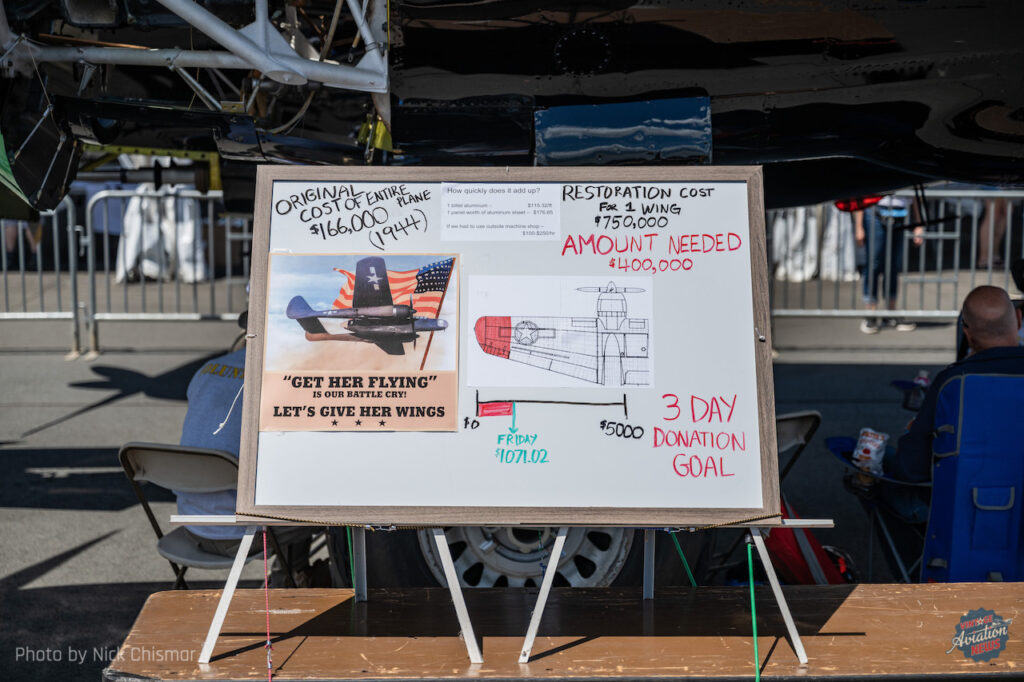 ORIGINAL
COST OF ENTIRE
PLANE
$166,000
(1944)
How quickly does it add up?
1 billet aluminum – $115.32/ft
1 panel worth of aluminum sheet – $176.65
If we had to use outside machine shop –
$100-$250/hr
RESTORATION COST
FOR 1 WING
$750,000
AMOUNT NEEDED
$400,000
"GET HER FLYING"
IS OUR BATTLE CRY!
LET'S GIVE HER WINGS
$0
$5000
FRIDAY
$1071.02
3 DAY
DONATION
GOAL
Photo by Nick Chismar
VINTAGE
Aviation
NEWS